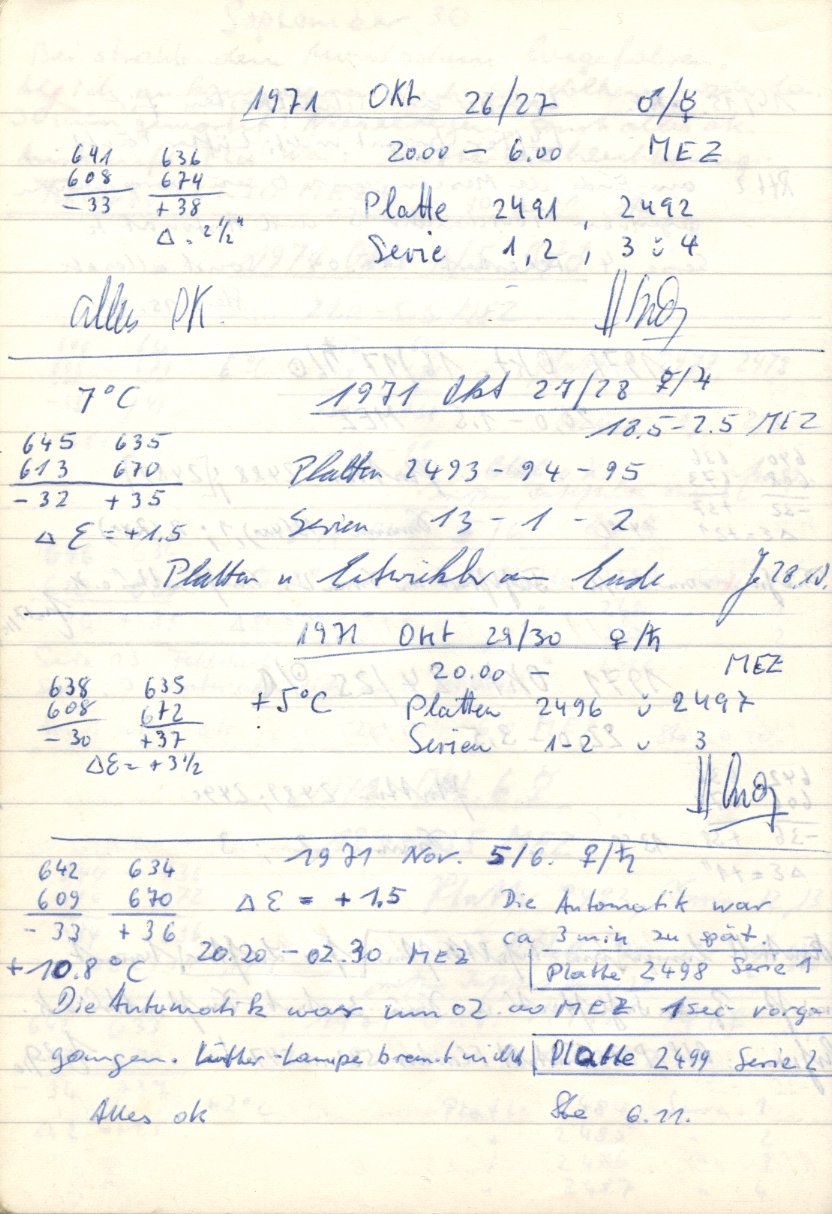 1971 Okt 26/27 ♂/☿
641 636 20.00 — 6.00 MEZ
608 674
-33 +38 Platte 2491, 2492
Δ = 2 1/2" Serie 1, 2, 3 ü 4
alles OK.
7°C 1971 Okt 27/28 ☿/♃
18.5-2.5 MEZ
645 635
613 670 Platten 2493-94-95
-32 +35
Δ ε = +1.5 Serien 13 - 1 - 2
Platten u Entwickler am Ende
1971 Okt 29/30 ♀/♄
20.00 — MEZ
638 635
608 672 +5°C Platten 2496 ü 2497
-30 +37 Serien 1-2 u 3
Δε = +3 1/2
1971 Nov. 5/6. ♀/♄
642 634
609 670 Δ ε = +1.5 Die Automatik war
-33 +36 ca 3 min zu spät.
+10.8°C 20.20 — 02.30 MEZ Platte 2498 Serie 1
Die Automatik war um 02.00 MEZ 1sec vorge
gangen. Lampe brennt nicht Platte 2499 Serie 2
Alles ok 6.11.